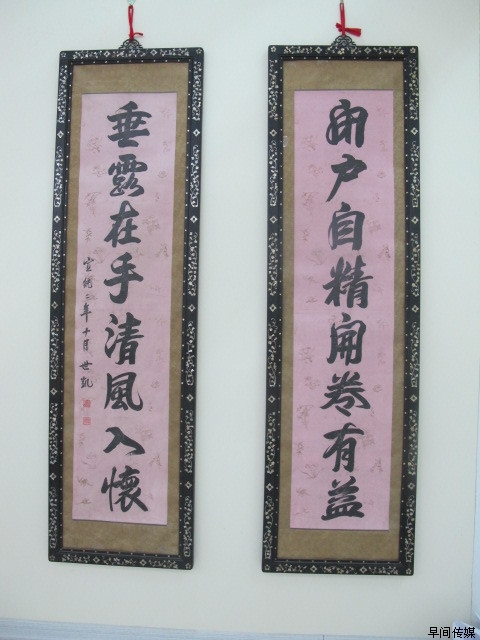 閉户自精開卷有益
垂露在手清風入懷
宣統二年十月世凱
早间传媒